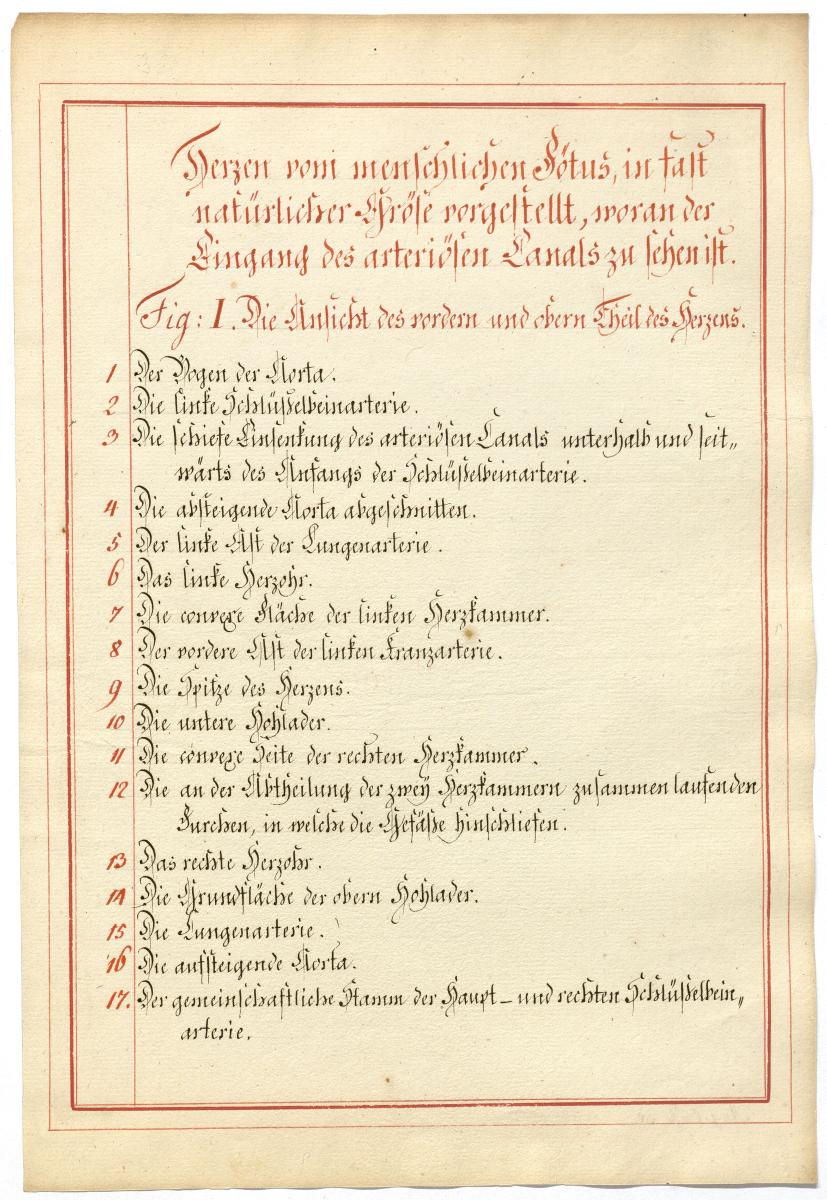 Herzen vom menschlichen Fötus, in fast
natürlicher Gröse vorgestellt, woran der
Eingang des arteriösen Canals zu sehen ist.
Fig: I. Die Ansicht des vordern und obern Theil des Herzens.
1 Der Bogen der Aorta.
2 Die linke Schlüßelbeinarterie.
3 Die schiefe Einsenkung des arteriösen Canals unterhalb und seit„
wärts des Anfangs der Schlüßelbeinarterie.
4 Die absteigende Aorta abgeschnitten.
5 Der linke Ast der Lungenarterie.
6 Das linke Herzohr.
7 Die convexe Fläche der linken Herzkammer.
8 Der vordere Ast der linken Kranzarterie.
9 Die Spitze des Herzens.
10 Die untere Hohlader.
11 Die convexe Seite der rechten Herzkammer.
12 Die an der Abtheilung der zwey Herzkammern zusammen laufenden
Furchen, in welche die Gefäße hinschliefen.
13 Das rechte Herzohr.
14 Die Grundfläche der obern Hohlader.
15 Die Lungenarterie.
16 Die aufsteigende Aorta.
17. Der gemeinschaftliche Stamm der Haupt- und rechten Schlüßelbein„
arterie.